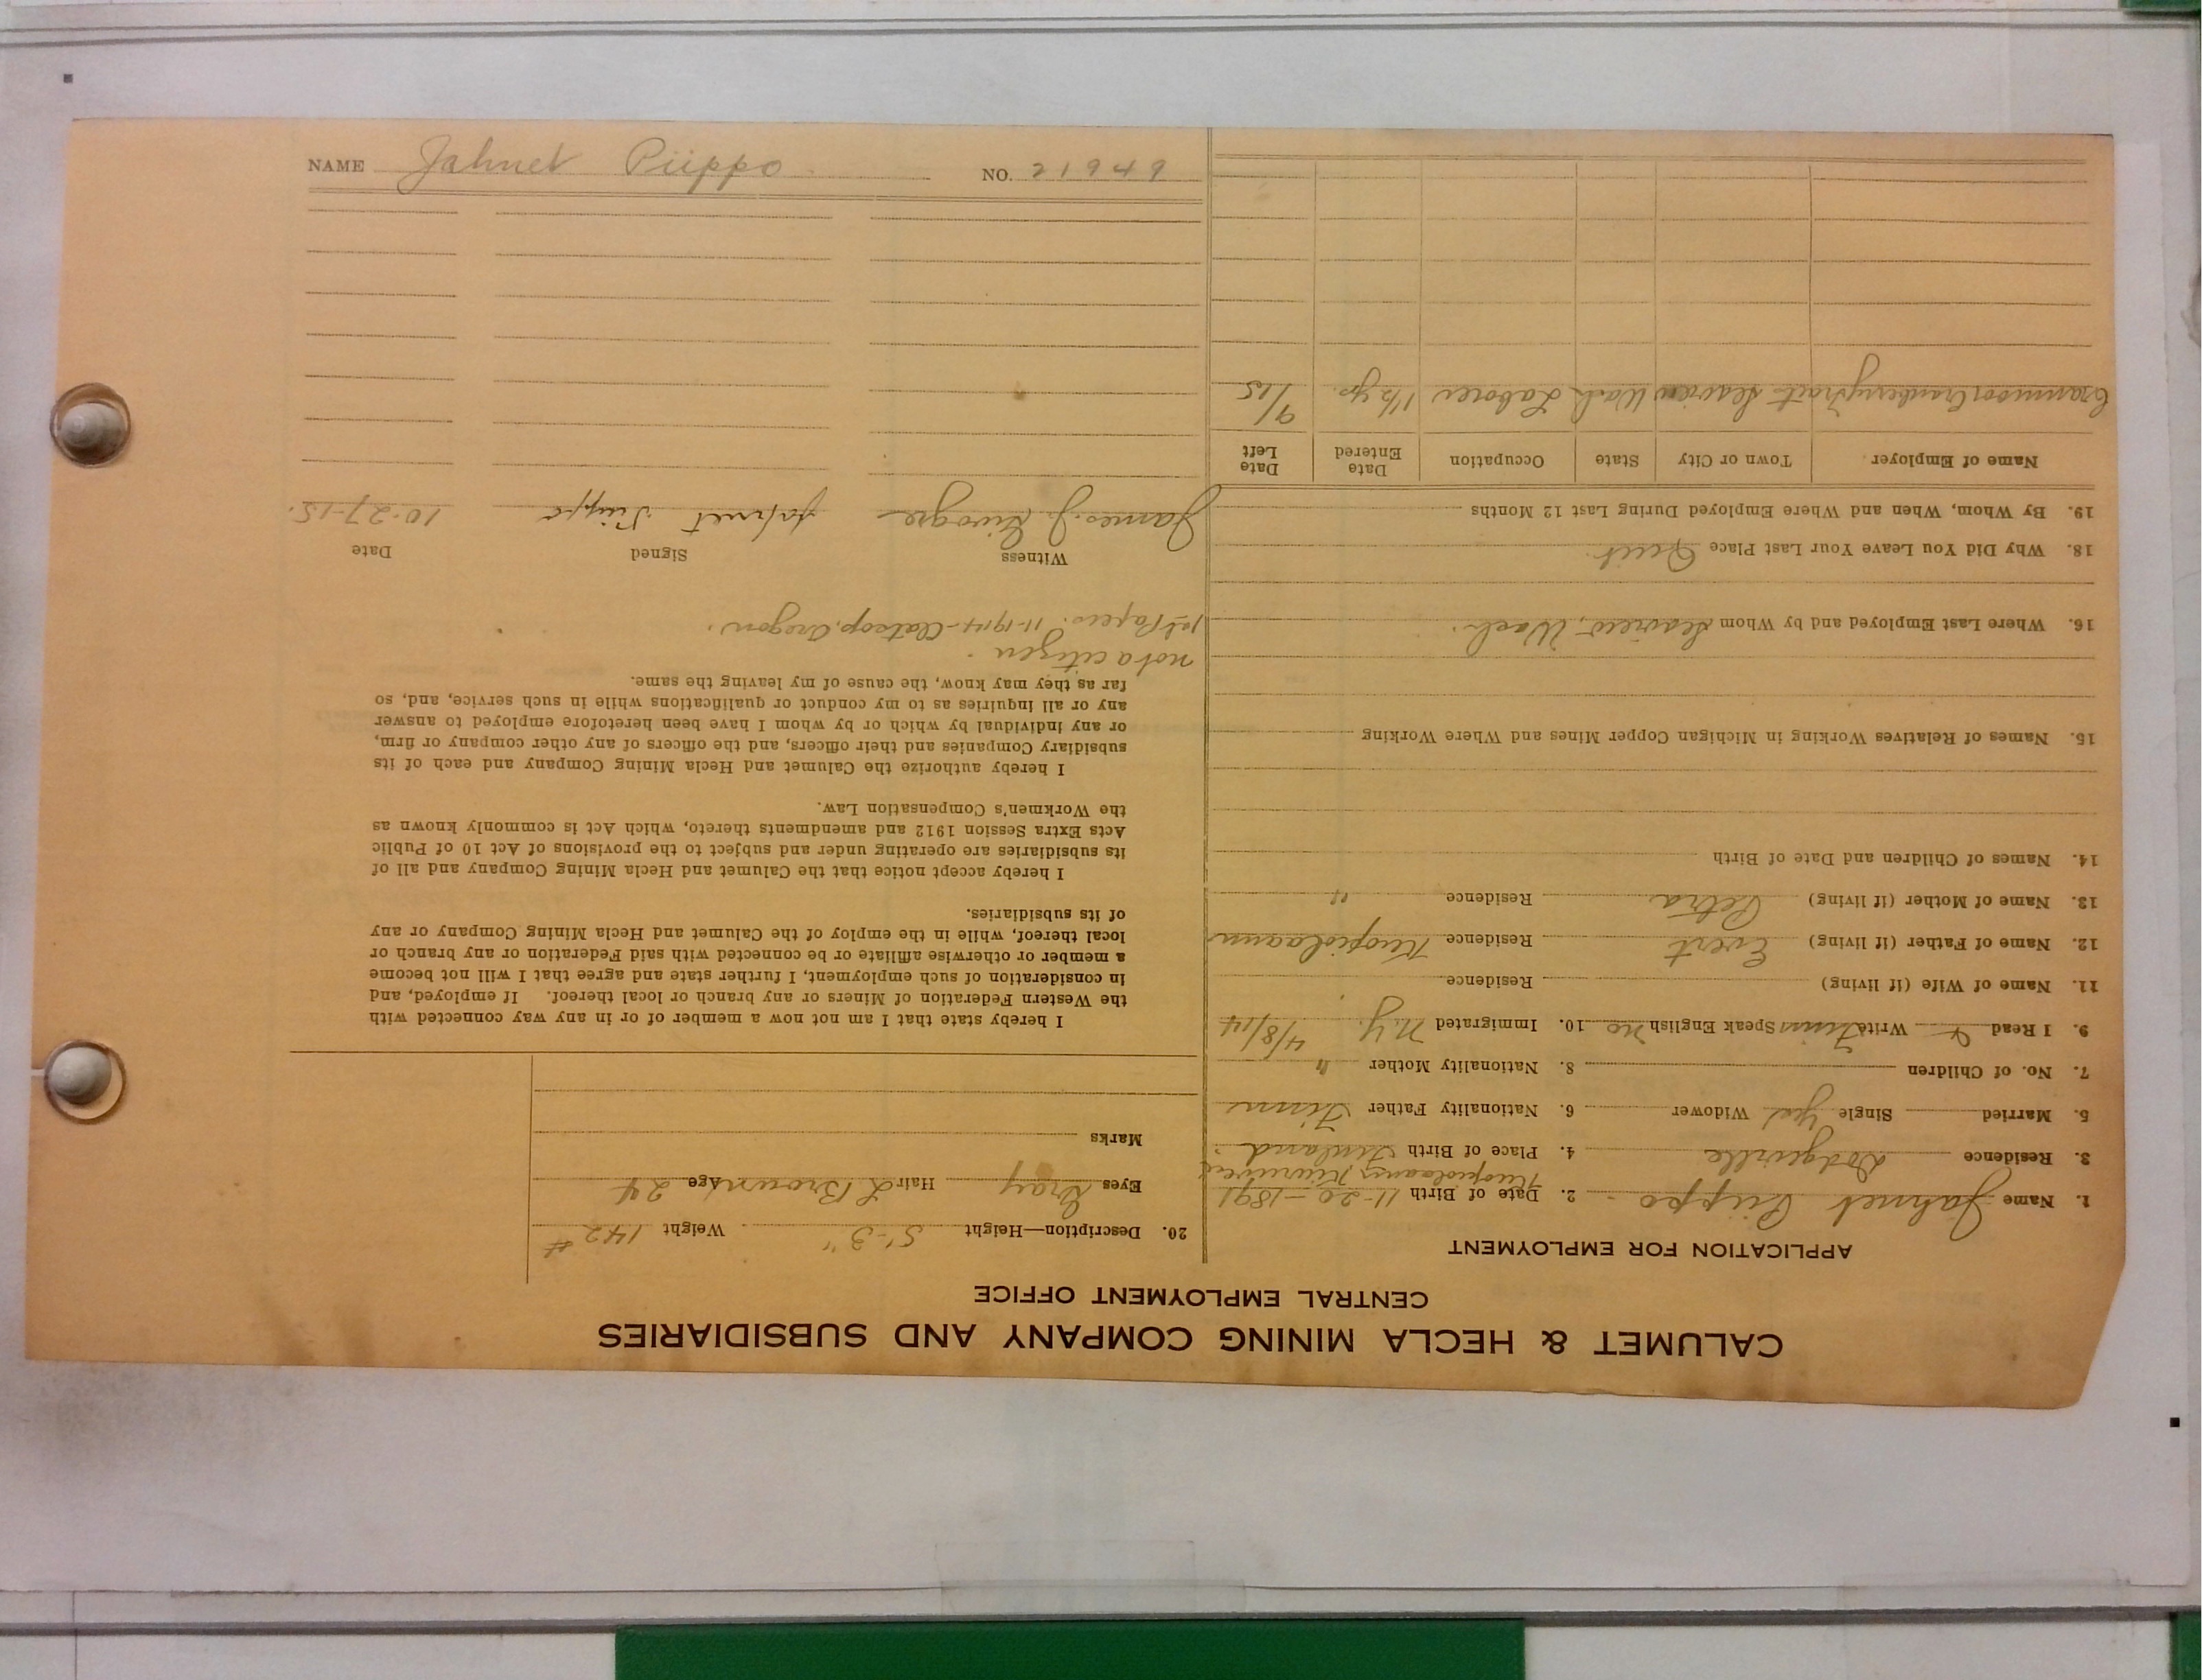 NAME Jahnet Piippo NO. 21949
CALUMET & HECLA MINING COMPANY AND SUBSIDIARIES
CENTRAL EMPLOYMENT OFFICE
APPLICATION FOR EMPLOYMENT
1. Name Jahnet Piippo 2. Date of Birth 11-20-1891
3. Residence Dodgeville 4. Place of Birth Finland
5. Married Single Yes Widower 6. Nationality Father Finn
7. No. of Children 8. Nationality Mother "
9. I Read & Write Finn Speak English No 10. Immigrated N.Y. 4/8/14
11. Name of Wife (if living) Residence
12. Name of Father (if living) Evert Residence Kuopiolaann
13. Name of Mother (if living) Petra Residence "
14. Names of Children and Date of Birth
15. Names of Relatives Working in Michigan Copper Mines and Where Working
16. Where Last Employed and by Whom Seaview, Wash.
18. Why Did You Leave Your Last Place Quit
19. By Whom, When and Where Employed During Last 12 Months
Name of Employer Town or City State Occupation Date Entered Date Left
Cranberry Seaview Wash Laborer 1½ yrs. 9/15
20. Description—Height 5'-3" Weight 142#
Eyes Gray Hair L Brown Age 24
Marks
I hereby state that I am not now a member of or in any way connected with
the Western Federation of Miners or any branch or local thereof. If employed, and
in consideration of such employment, I further state and agree that I will not become
a member or otherwise affiliate or be connected with said Federation or any branch or
local thereof, while in the employ of the Calumet and Hecla Mining Company or any
of its subsidiaries.
I hereby accept notice that the Calumet and Hecla Mining Company and all of
its subsidiaries are operating under and subject to the provisions of Act 10 of Public
Acts Extra Session 1912 and amendments thereto, which Act is commonly known as
the Workmen's Compensation Law.
I hereby authorize the Calumet and Hecla Mining Company and each of its
subsidiary Companies and their officers, and the officers of any other company or firm,
or any individual by which or by whom I have been heretofore employed to answer
any or all inquiries as to my conduct or qualifications while in such service, and, so
far as they may know, the cause of my leaving the same.
not a citizen.
1st Papers. 11-1914-Clatsop, Oregon.
Witness Signed Date
James J. Jahnet Piippo 10-27-15.